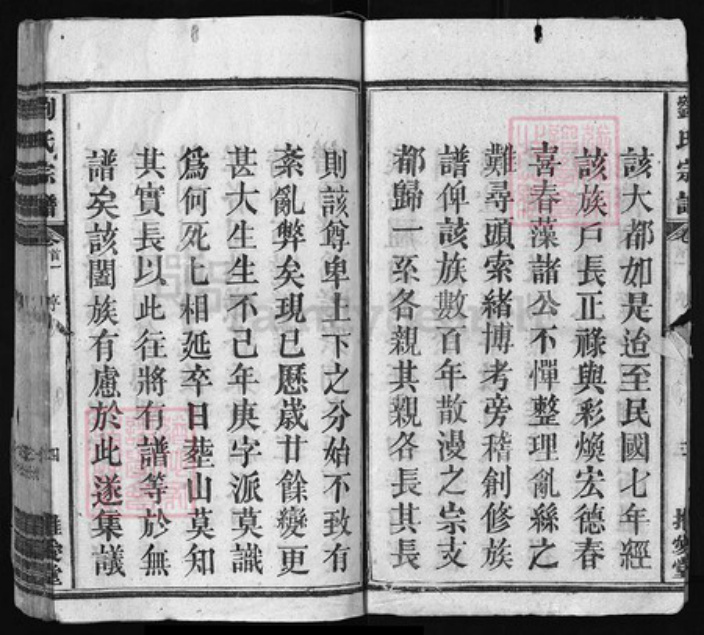 劉氏宗譜
卷首一
三
推愛堂
該大都如是迨至民國七年經
該族戶長正祿與彩煥宏德春
喜春藻諸公不憚整理亂絲之
難尋頭索緒博考旁稽創修族
譜俾該族數百年散漫之宗支
都歸一系各親其親各長其長
則該尊卑上下之分始不致有
紊亂弊矣現已歷歲廿餘變更
甚大生生不已年庚字派莫識
為何死亡相延卒日塟山莫知
其實長以此往將有譜等於無
譜矣該闔族有慮於此遂集議
劉氏宗譜
卷首一
序
四
推愛堂